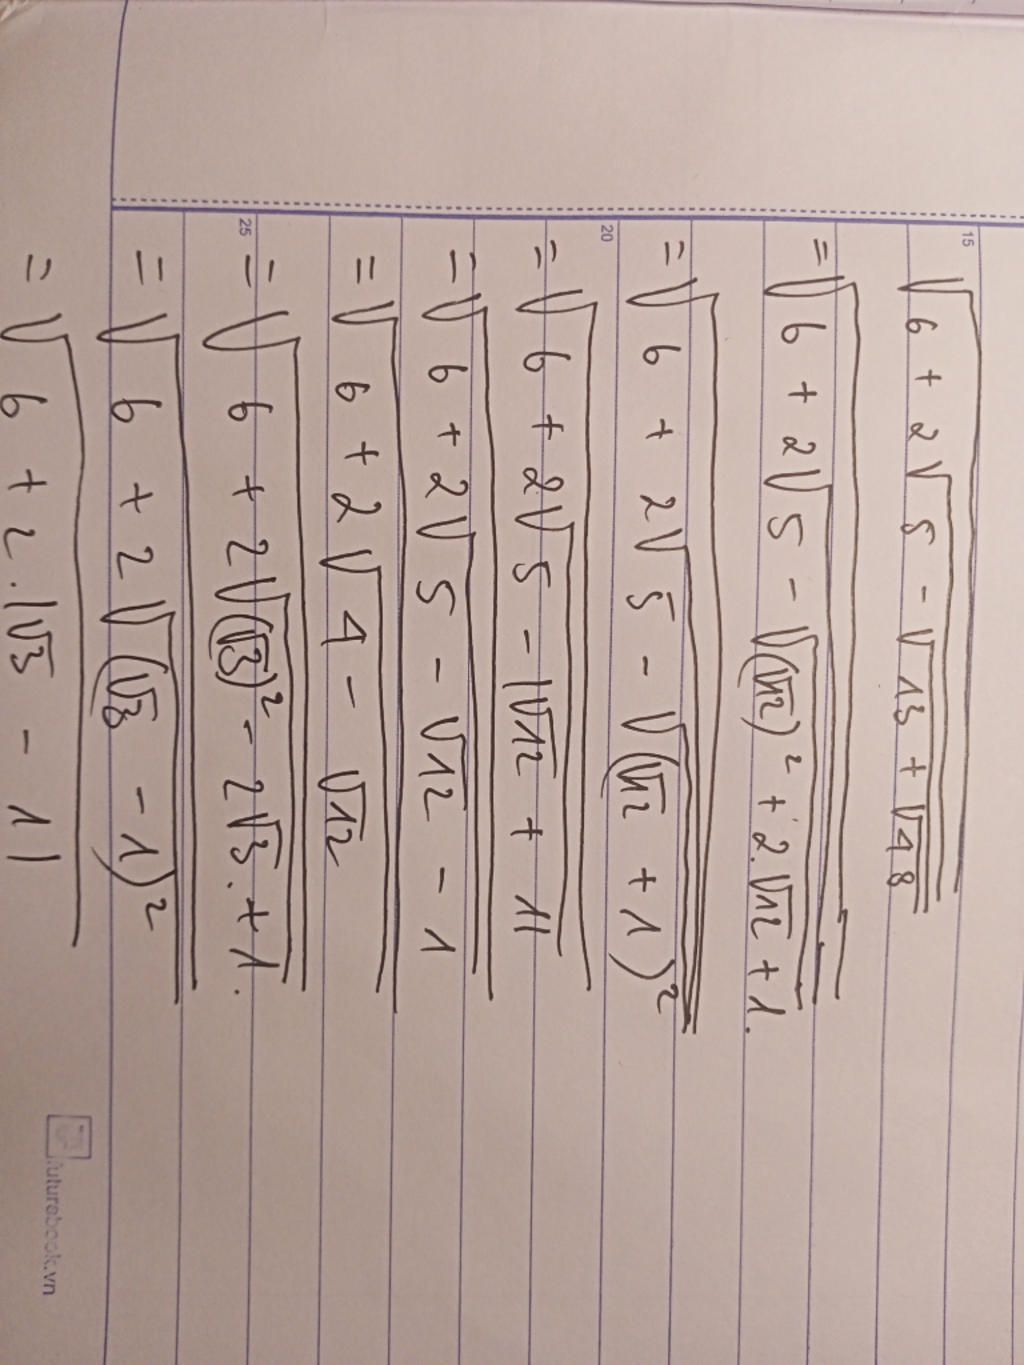 15
√(6 + 2√(5 - √(13 + √48)))
= √(6 + 2√(5 - √((√12)² + 2.√12 + 1.)))
20
= √(6 + 2√(5 - √((√12 + 1)²)))
= √(6 + 2√(5 - |√12 + 1|))
= √(6 + 2√(5 - √12 - 1))
= √(6 + 2√(4 - √12))
25
= √(6 + 2√((√3)² - 2√3. + 1.))
= √(6 + 2√((√3 - 1)²))
= √(6 + 2.|√3 - 1|)
futurebook.vn